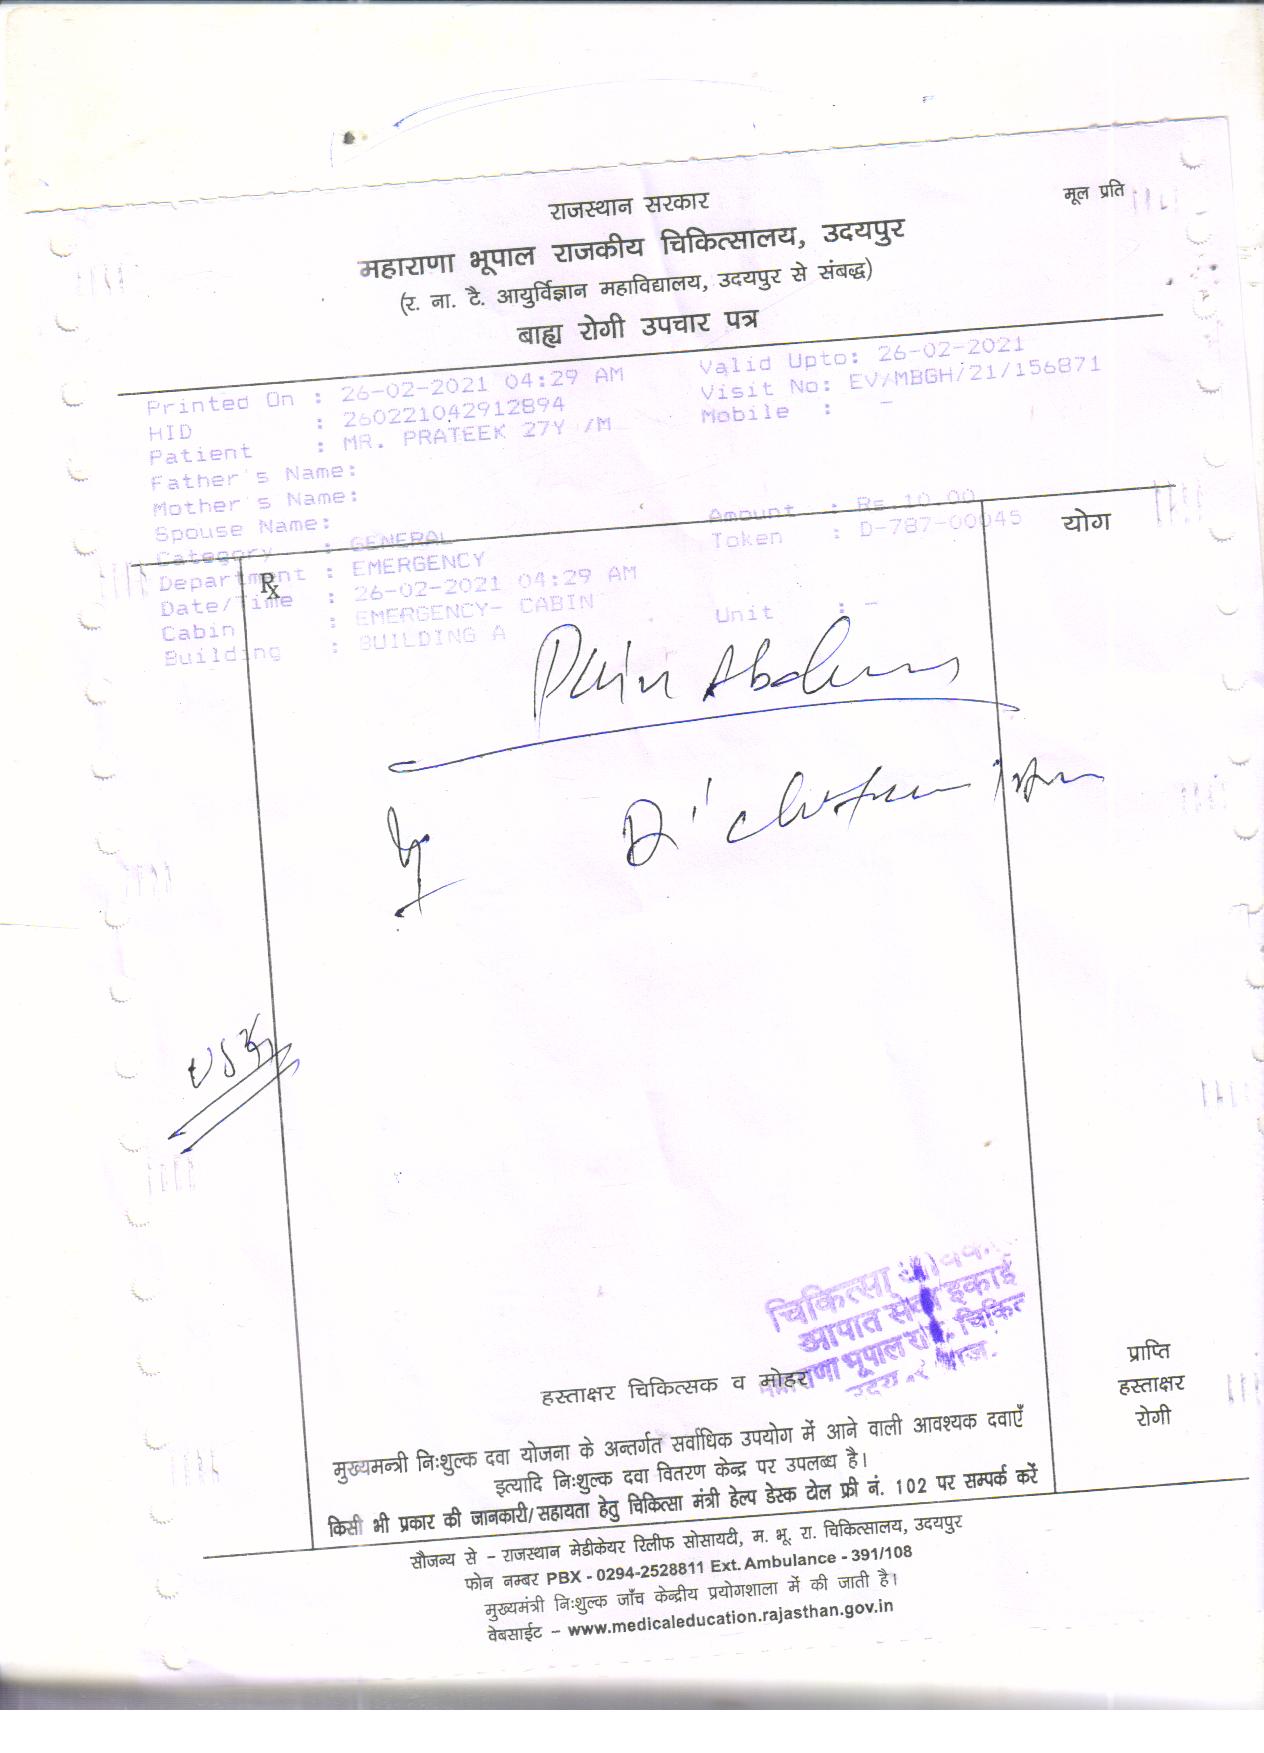 राजस्थान सरकार
मूल प्रति
महाराणा भूपाल राजकीय चिकित्सालय, उदयपुर
(र. ना. टै. आयुर्विज्ञान महाविद्यालय, उदयपुर से संबद्ध)
बाह्य रोगी उपचार पत्र
Printed On : 26-02-2021 04:29 AM Valid Upto: 26-02-2021
HID : 260221042912894 Visit No: EV/MBGH/21/156871
Patient : MR. PRATEEK 27Y /M Mobile : -
Father's Name:
Mother's Name:
Spouse Name: Amount : Rs.10.00
Category : GENERAL Token : D-787-00045
योग
Department : EMERGENCY
Rx
Date/Time : 26-02-2021 04:29 AM
Cabin : EMERGENCY- CABIN Unit : -
Building : BUILDING A
Pain Abdomen
चिकित्सा
आपात सेवा इकाई
भूपाल
हस्ताक्षर चिकित्सक व मोहर
प्राप्ति
हस्ताक्षर
रोगी
मुख्यमन्त्री निःशुल्क दवा योजना के अन्तर्गत सर्वाधिक उपयोग में आने वाली आवश्यक दवाएँ
इत्यादि निःशुल्क दवा वितरण केन्द्र पर उपलब्ध है।
किसी भी प्रकार की जानकारी/सहायता हेतु चिकित्सा मंत्री हेल्प डेस्क टोल फ्री नं. 102 पर सम्पर्क करें
सौजन्य से – राजस्थान मेडीकेयर रिलीफ सोसायटी, म. भू. रा. चिकित्सालय, उदयपुर
फोन नम्बर PBX - 0294-2528811 Ext. Ambulance - 391/108
मुख्यमंत्री निःशुल्क जाँच केन्द्रीय प्रयोगशाला में की जाती है।
वेबसाईट – www.medicaleducation.rajasthan.gov.in